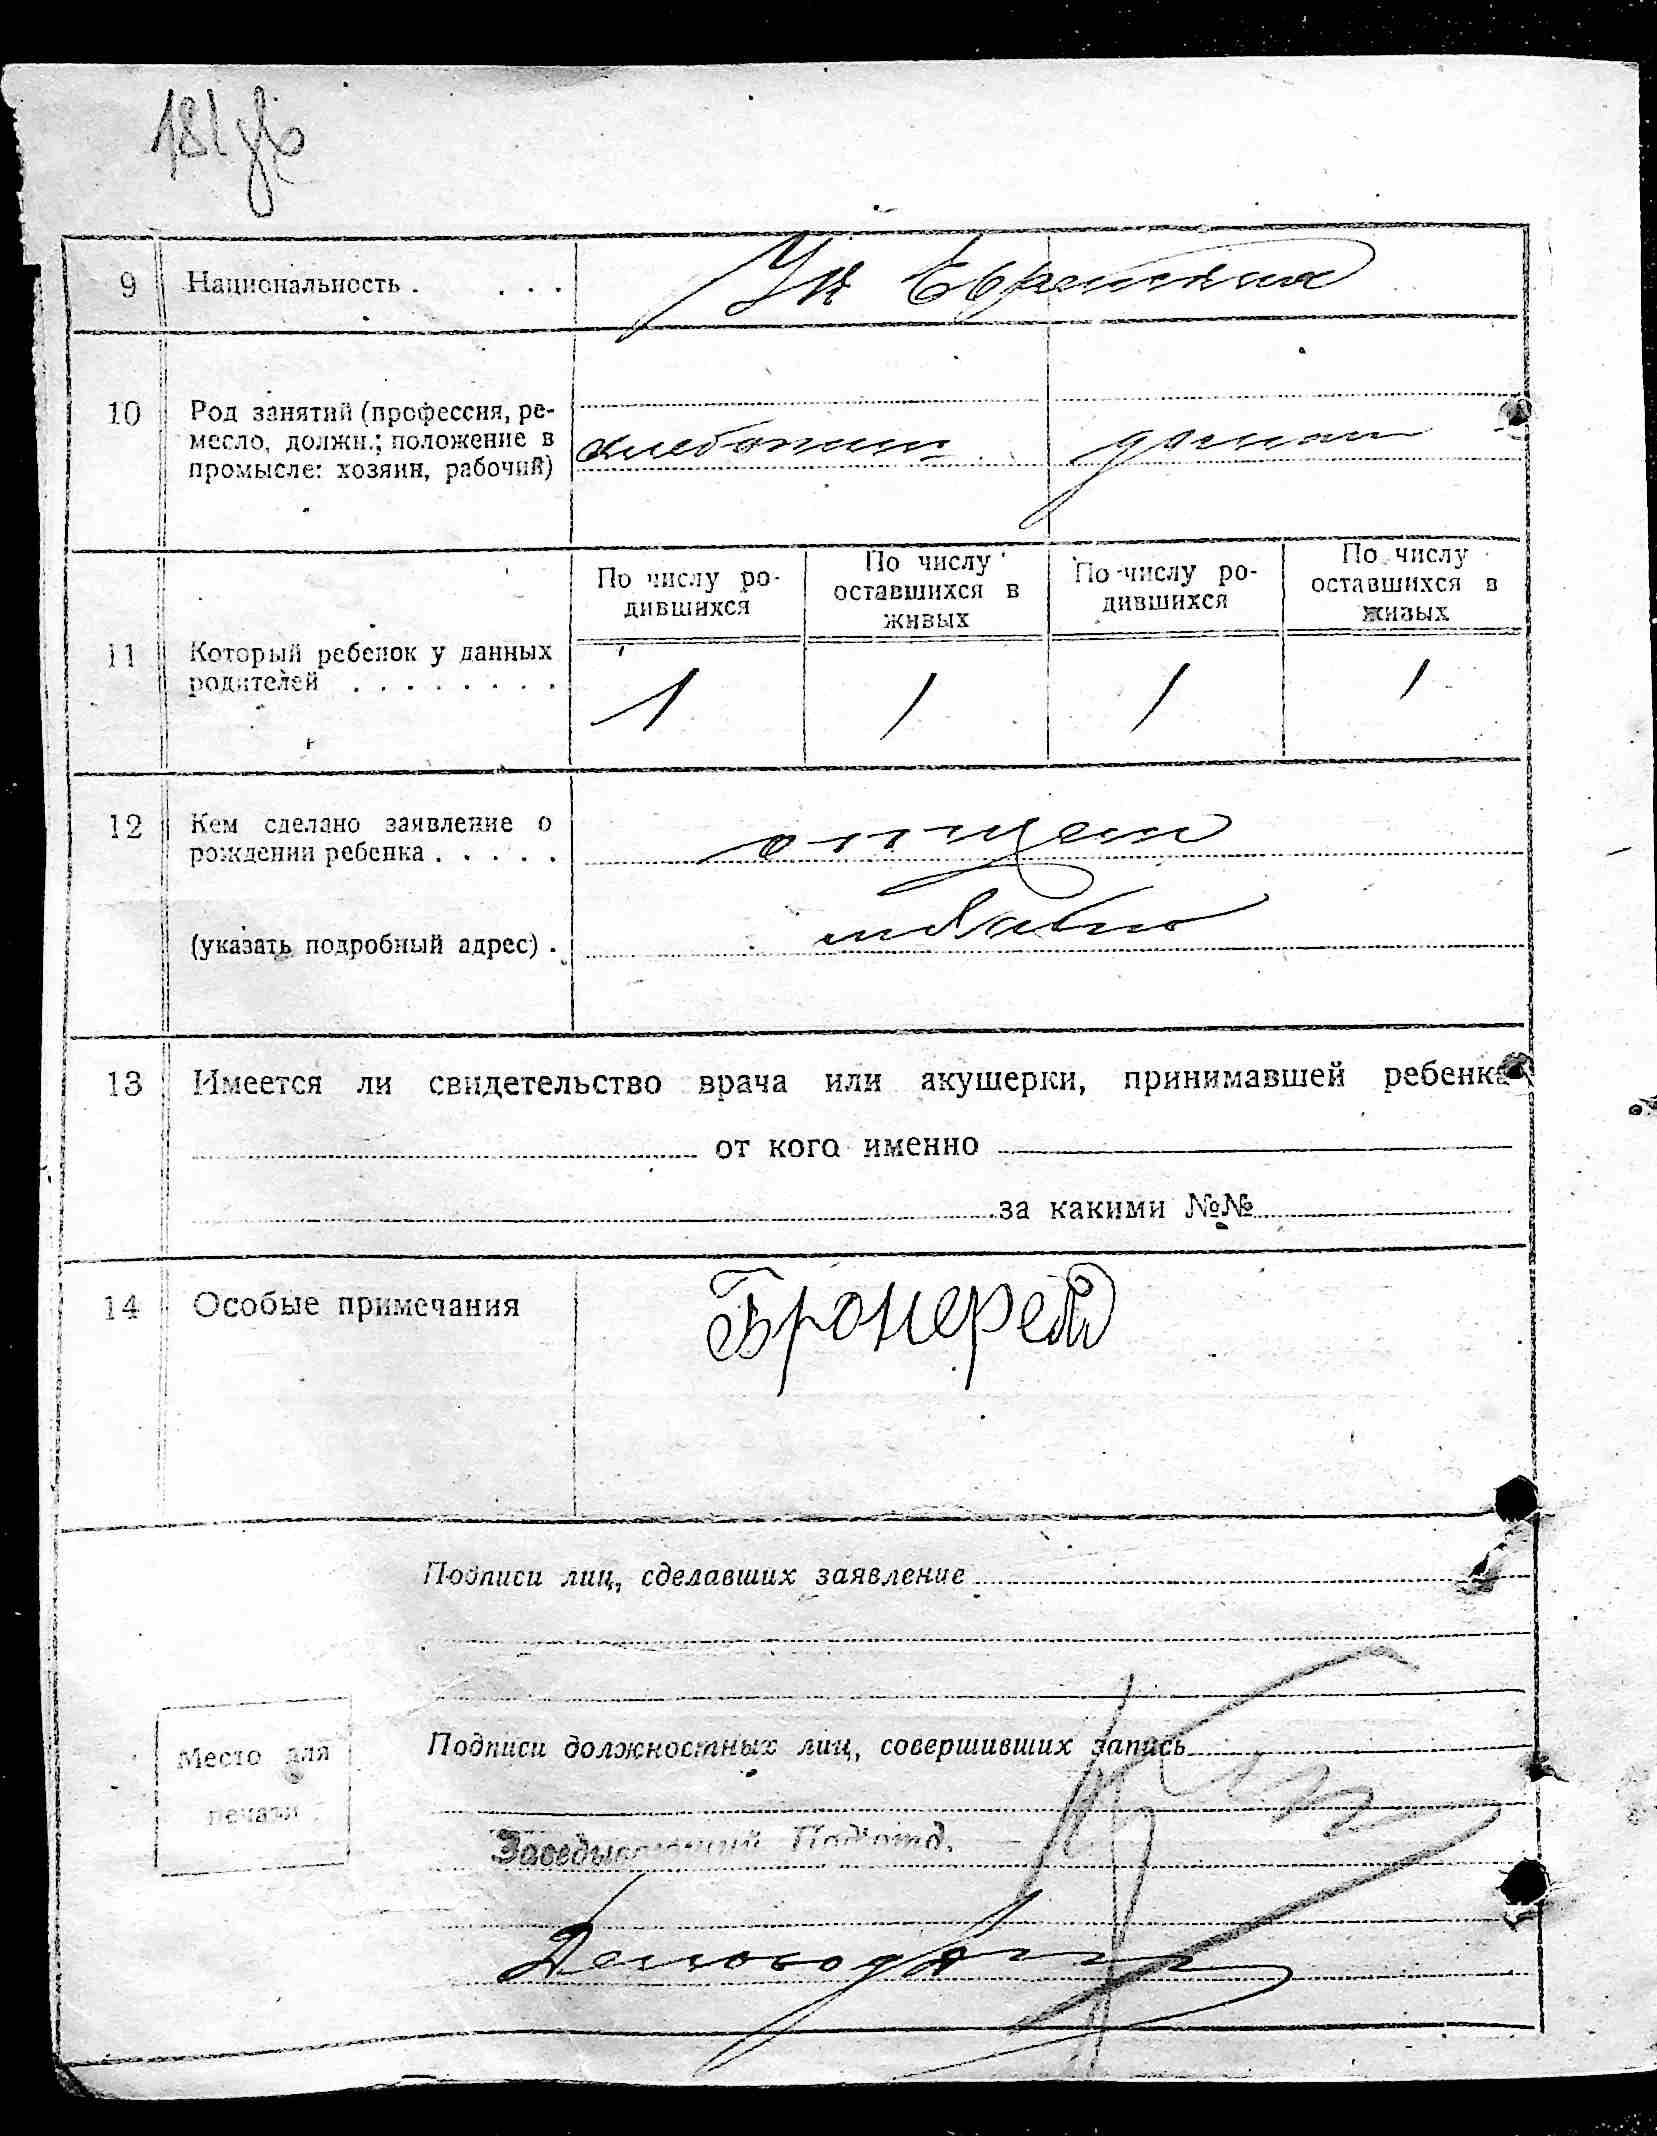 9 Национальность . . . . Ук Еврейская
10 Род занятий (профессия, ре-
месло, должн.; положение в
промысле: хозяин, рабочий)
хлебопаш. домаш
По числу ро-
дившихся
По числу
оставшихся в
живых
По числу ро-
дившихся
По числу
оставшихся в
живых
11 Который ребенок у данных
родителей . . . . . . . .
1 1 1 1
12 Кем сделано заявление о
рождении ребенка . . . . .
отцем
(указать подробный адрес) .
13 Имеется ли свидетельство врача или акушерки, принимавшей ребенка
от кого именно
за какими №№
14 Особые примечания
Подписи лиц, сделавших заявление
Подписи должностных лиц, совершивших запись
Место для
печати
Заведывающий Под'отд.
Деловод